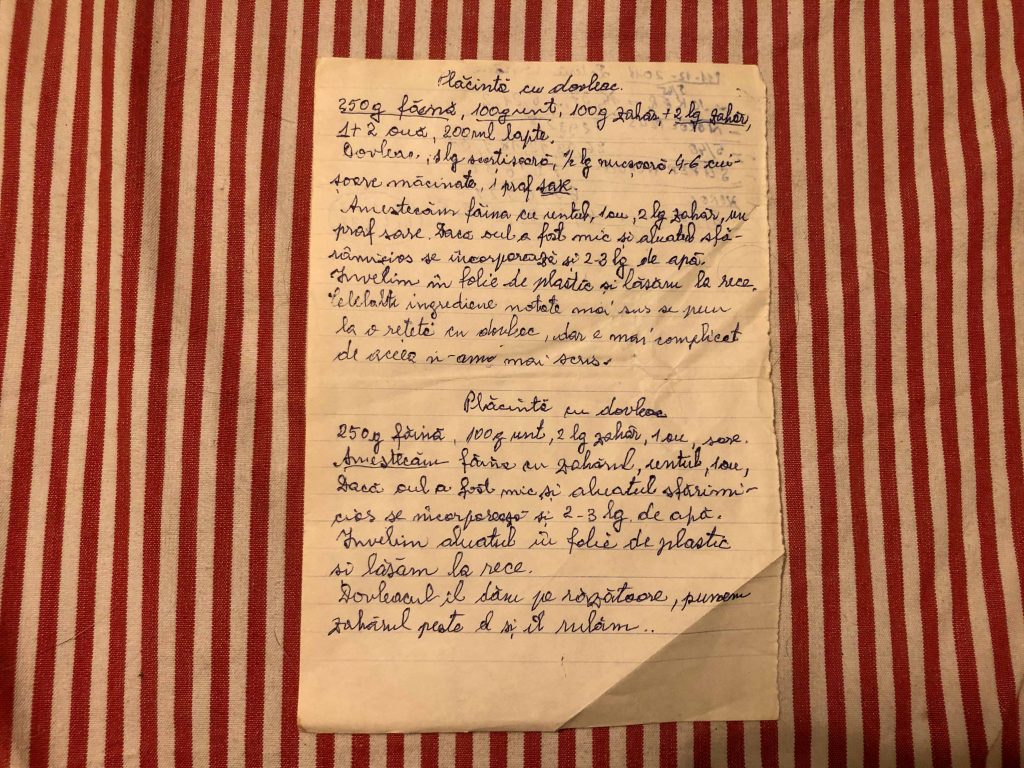 Plăcintă cu dovleac.
250g făină, 100g unt, 100g zahăr, + 2 lg zahăr,
1+2 ouă, 200ml lapte.
Dovleac, 1lg scortisoară, 1/2 lg nucșoară, 4-6 cui-
șoare măcinate, 1 praf sare.
Amestecăm făina cu untul, 1ou, 2 lg zahăr, un
praf sare. Dacă oul a fost mic și aluatul sfă-
râmicios se incorporează și 2-3 lg de apă.
Învelim în folie de plastic și lăsăm la rece.
Celelalte ingrediene notate mai sus se pun
la o rețetă cu dovleac, dar e mai complicat
de aceea n-am mai scris.
Plăcintă cu dovleac
250g făină, 100g unt, 2 lg zahăr, 1ou, sare.
Amestecăm făina cu zahărul, untul, 1ou,
Dacă oul a fost mic și aluatul sfărîmi-
cios se incorporează și 2-3 lg. de apă.
Învelim aluatul în folie de plastic
si lăsăm la rece.
Dovleacul il dăm pe răzătoare, punem
zahărul peste el și îl rulăm..